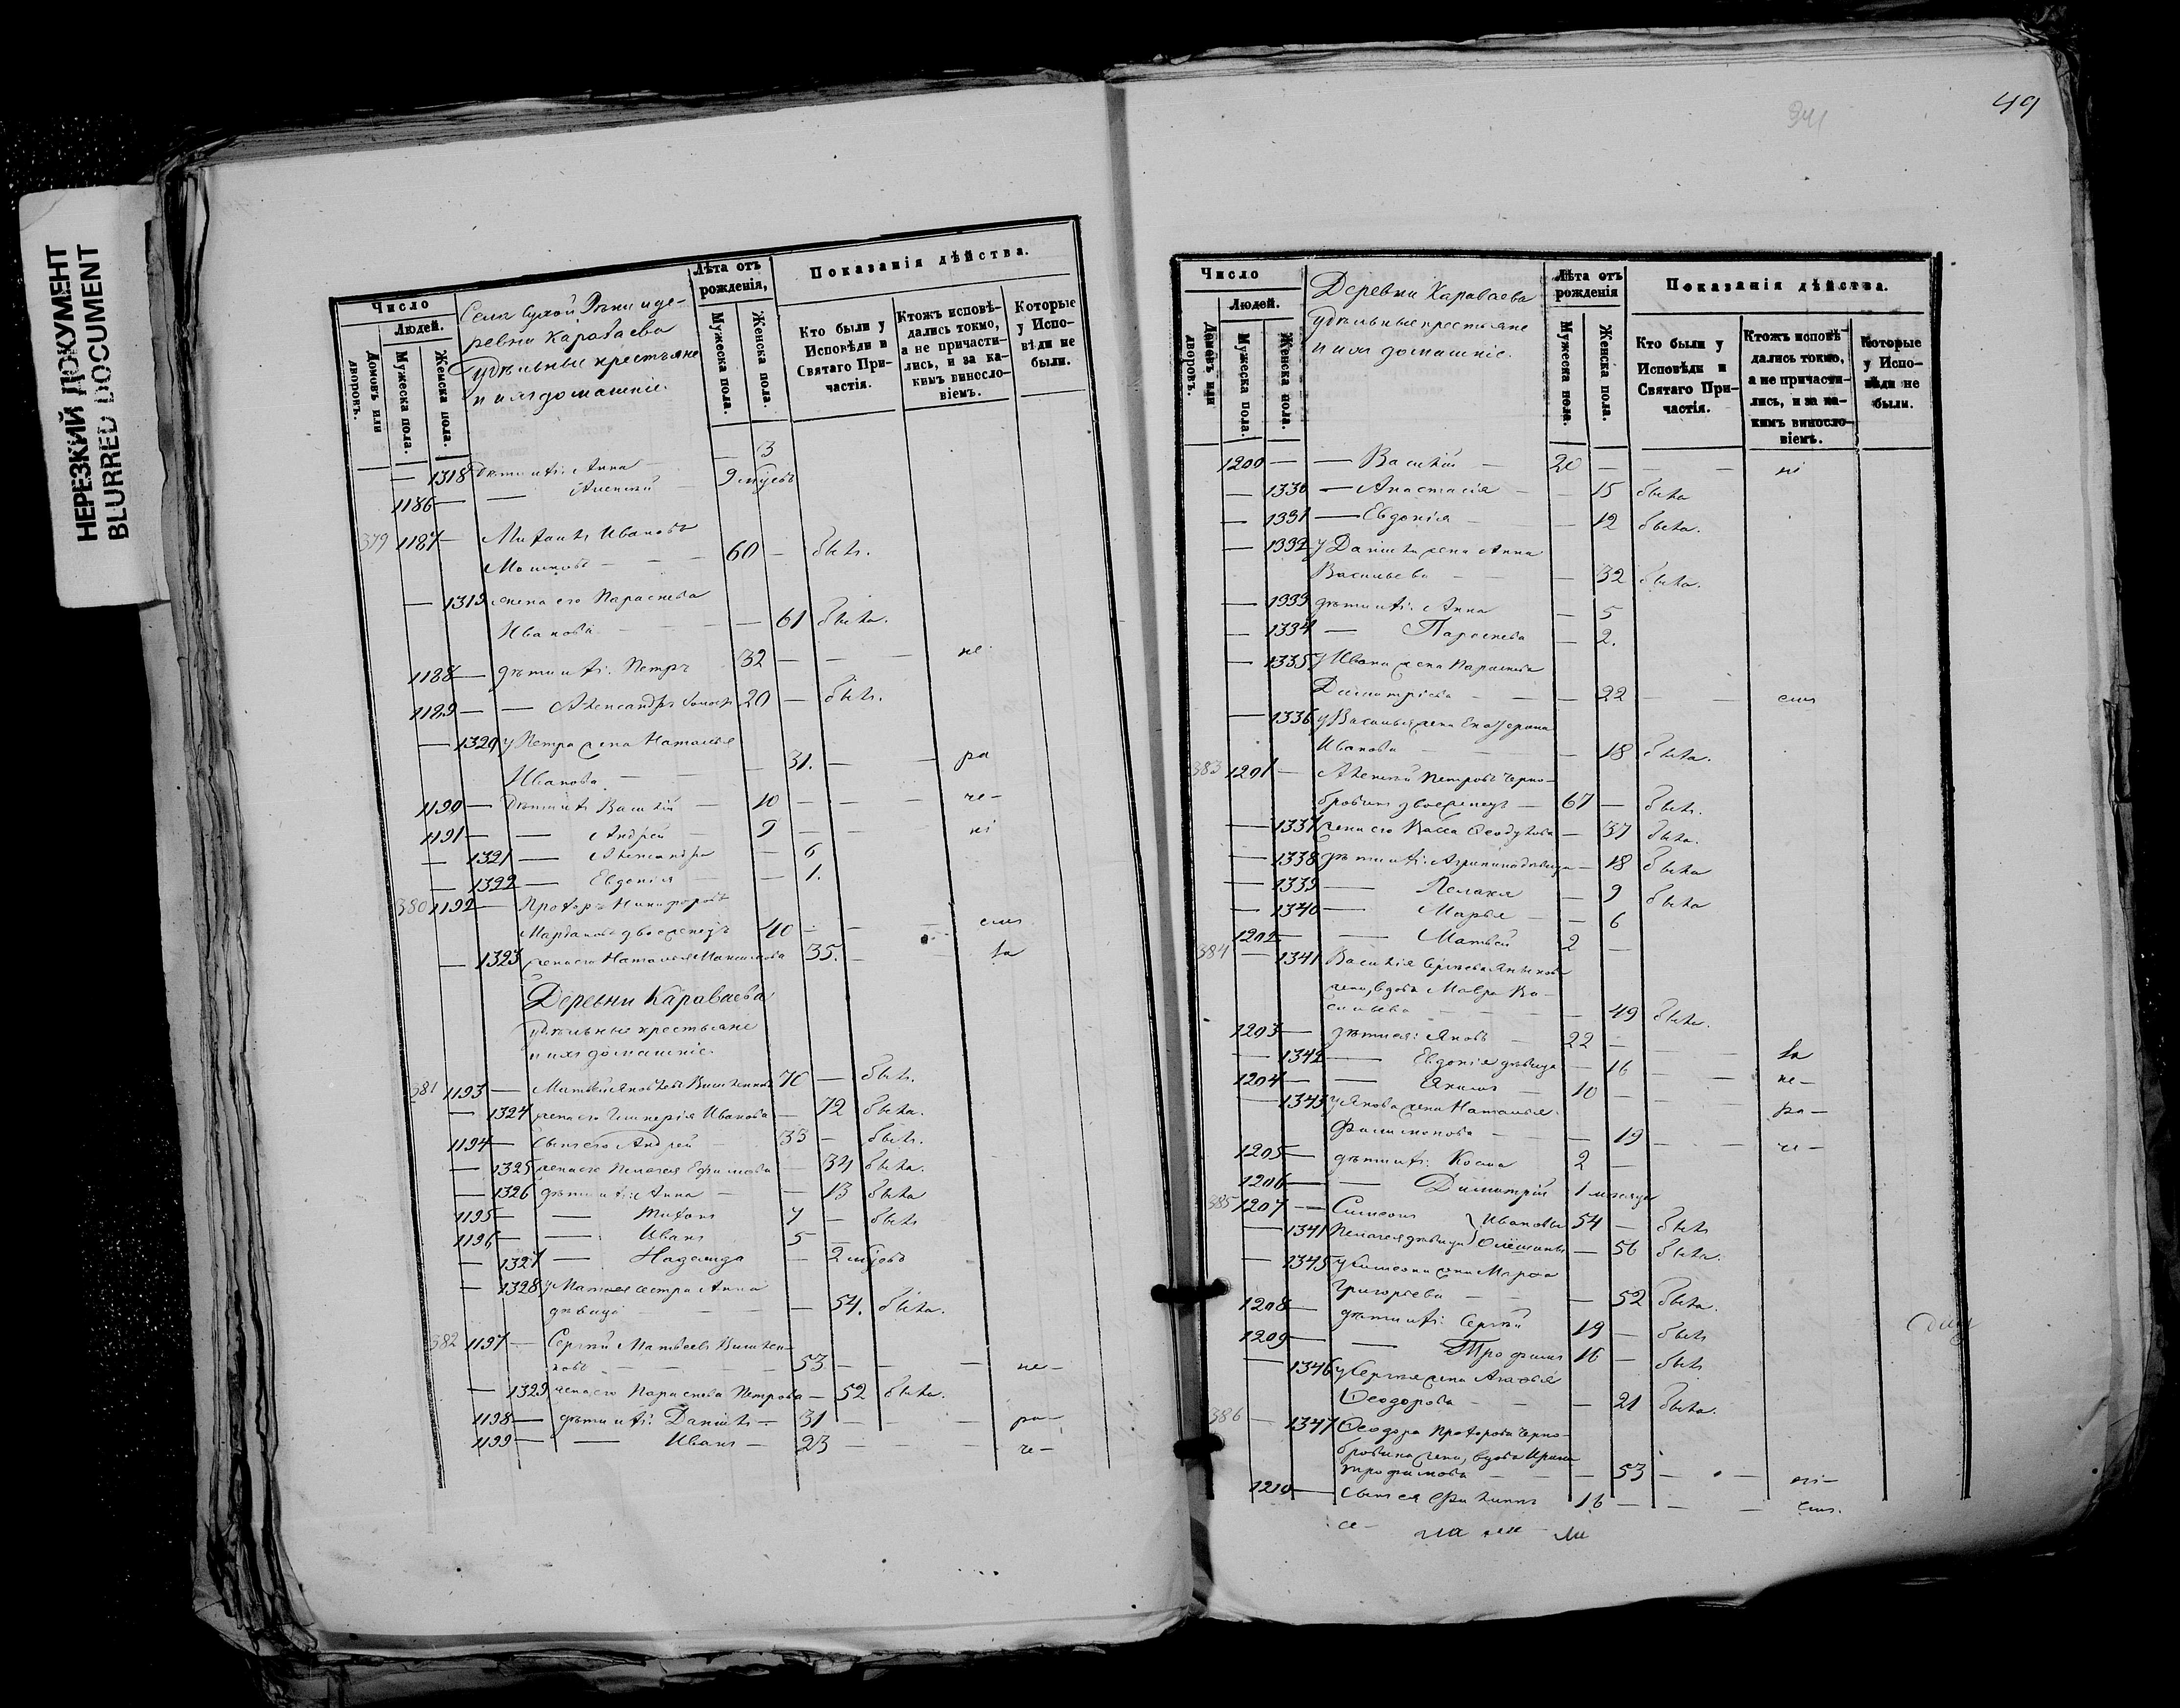 НЕРЕЗКИЙ ДОКУМЕНТ
BLURRED DOCUMENT
Число
Людей.
Домовъ или дворовъ.
Мужеска пола.
Женска пола.
Села Сухой Рѣки и де-
ревни Караваева
удѣльные крестьяне
и ихъ домашніе.
Лѣта отъ рожденія,
Мужеска пола.
Женска пола.
Показанія дѣйства.
Кто были у Исповѣди и Святаго При-частія.
Ктожъ исповѣ-дались токмо, а не причасти-лись, и за ка-кимъ винословіемъ.
Которые у Испо-вѣди не были.
— 1318 Дѣти ихъ: Анна — 3
1186 — — Алексѣй — 9 мѣсяцъ
379 1187 — Михаилъ Ивановъ
60 — былъ.
— 1319 жена его Параскева
Иванова — — — 61 была.
1188 — дѣти ихъ: Петръ 32 — — — не
1189 — — Александръ 20 — былъ.
— 1320 у Петра жена Наталья
Иванова — 31. — — ра
1190 — Дѣти ихъ Василій — 10 — — — че-
1191 — — Андрей — 9 — — ні
— 1321 — Александра — 6
— 1322 — Евдокія — 1.
380 1192 — Прохоръ Никифоровъ
двоеженецъ 40 — — — емъ
— 1323 жена его Наталья Максимова 35. — — ла
Деревни Караваева
удѣльные крестьяне
и ихъ домашніе.
381 1193 — Матвей Яковлевъ 70 — былъ.
— 1324 жена его Гликерія Иванова — 72 была.
1194 — сынъ его Андрей — 33 — былъ.
— 1325 жена его Пелагея Ефимова — 34 была.
— 1326 дѣти ихъ: Анна — — 13 была
1195 — — Титъ 7 — былъ
1196 — — Иванъ 5 —
— 1327 — Надежда — 2 мѣсяц
— 1328 у Матвея сестра Анна
дѣвица — — — 54. была.
382 1197 — Сергѣй Матвеевъ
— 53 — — — не-
— 1329 жена его Параскева Петрова — 52 была.
1198 — дѣти ихъ: Даніилъ — 31 — — — ра-
1199 — — Иванъ — 23 — — — че-
941
49
Число
Людей.
Домовъ или дворовъ.
Мужеска пола.
Женска пола.
Деревни Караваева
удѣльные крестьяне
и ихъ домашніе.
Лѣта отъ рожденія
Мужеска пола.
Женска пола.
Показанія дѣйства.
Кто были у Исповѣди и Святаго При-частія.
Ктожъ исповѣ-дались токмо, а не причасти-лись, и за ка-кимъ винословіемъ.
Которые у Испо-вѣди не были.
1200 — — Василій — 20 — — — ні
— 1330 — Анастасія — — 15 была
— 1331 — Евдокія — — 12 была.
— 1332 у Даніила жена Анна
Васильева — — — 32 была.
— 1333 дѣти ихъ: Анна — 5
— 1334 — Параскева — 2.
— 1335 у Ивана жена Параскева
Димитріева — — — 22 — — емъ
— 1336 у Василья жена Екатерина
Иванова — — — 18 была.
383 1201 — Алексѣй Петровъ Черно-
бровинъ двоеженецъ — 67 — былъ.
— 1337 жена его Васса Ѳеодулова — 37 была.
— 1338 дѣти ихъ: Агрипина дѣвица — 18 была
— 1339 — Пелагея — 9 была
— 1340 — Марья — — 6
1202 — — Матвей 2 —
384 — 1341 Василія Сергѣева
жена, вдова Мавра Ва-
сильева — — — 49 была.
1203 — дѣти ея: Яковъ — 22 — — — ла
— 1342 — Евдокія дѣвица — 16 — — не-
1204 — — Якимъ — 10 — — — ра-
— 1343 у Якова жена Наталья
Филимонова — — — 19 — — че-
1205 — дѣти ихъ: Косма 2 —
1206 — — Димитрій 1 месяца
385 1207 — Симеонъ } Ивановы 54 — былъ
— 1341 Пелагея дѣвица — 56 была.
— 1345 у Симеона жена Марфа
Григорьева — — — 52 была.
1208 — дѣти ихъ: Сергѣй 19 — былъ
1209 — — Трофимъ 16 — былъ
— 1346 у Сергѣя жена Агафья
Ѳеодорова — — — 21 была.
386 — 1347 Ѳеодора Прохорова Черно-
бровина жена, вдова Ирина
Трофимова — — — 53 — — ні-
1210 — сынъ ея Филиппъ 16 — — — емъ.